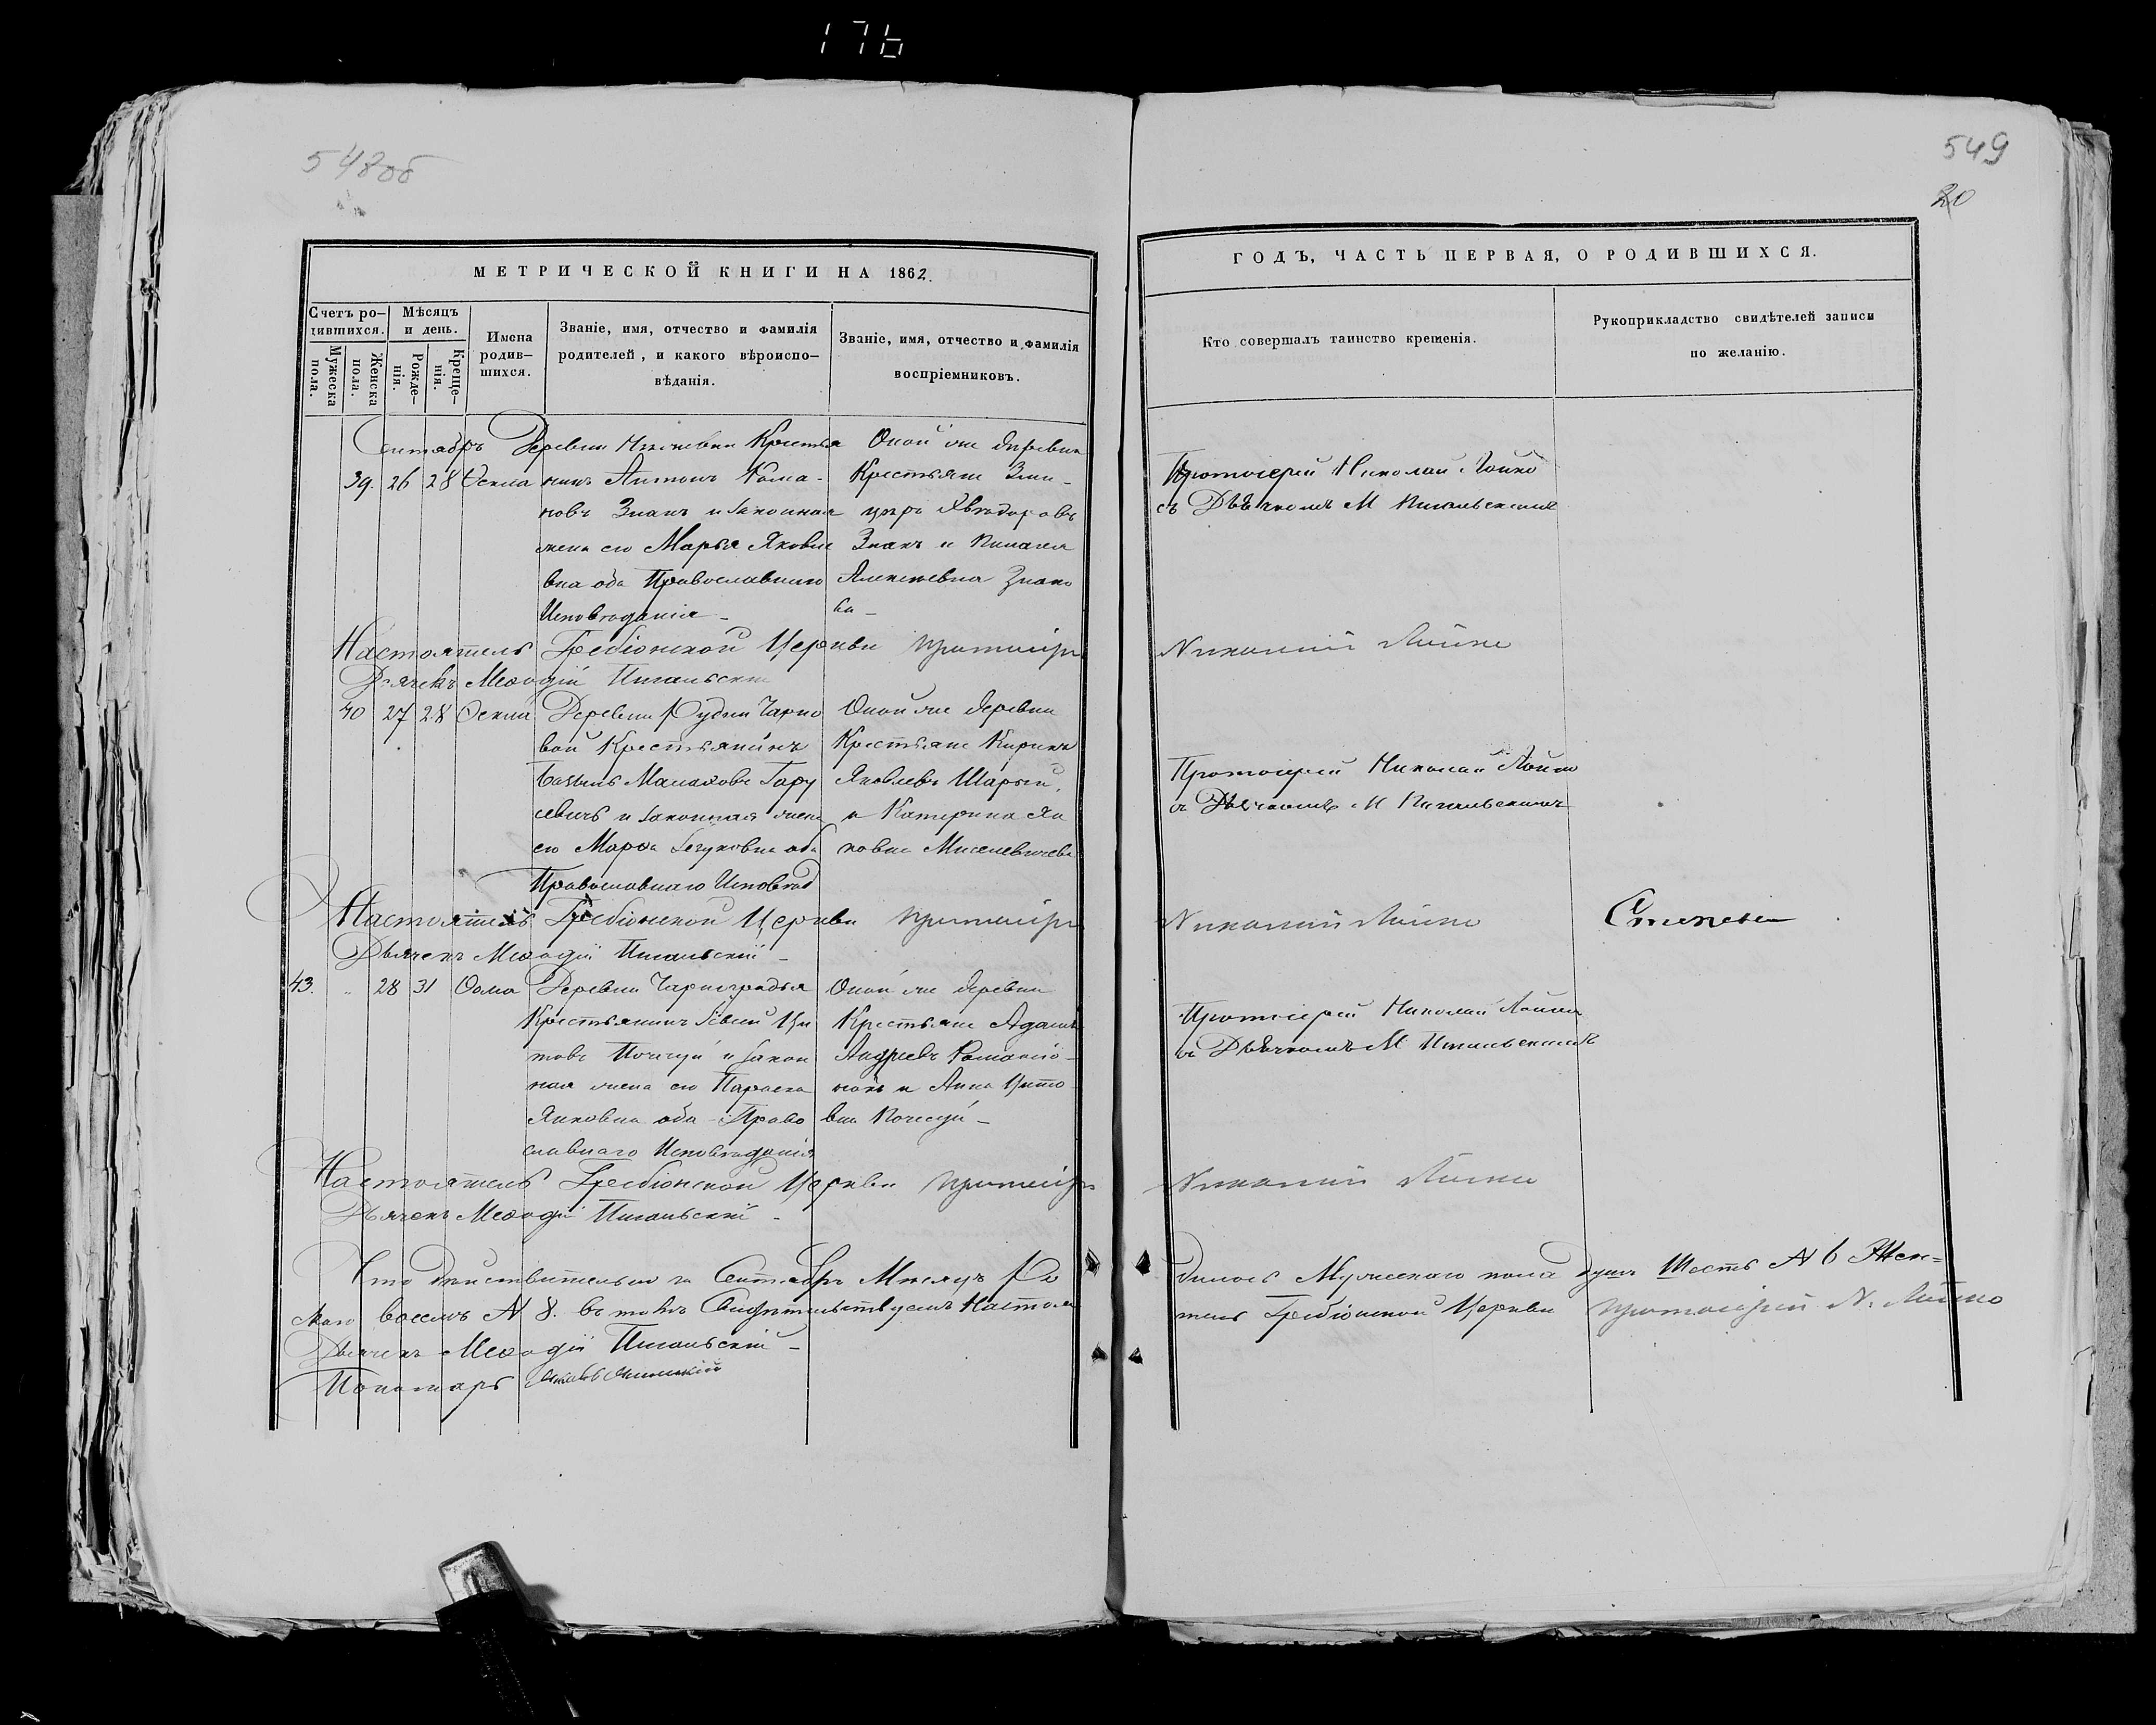 176
548об
549
20
МЕТРИЧЕСКОЙ КНИГИ НА 1862.
ГОДЪ, ЧАСТЬ ПЕРВАЯ, О РОДИВШИХСЯ.
Счетъ родившихся.
Мужеска пола.
Женска пола.
Мѣсяцъ и день.
Рожденія.
Крещенія.
Имена родившихся.
Званіе, имя, отчество и фамилія родителей, и какого вѣроисповѣданія.
Званіе, имя, отчество и фамилія воспріемниковъ.
Кто совершалъ таинство крещенія.
Рукоприкладство свидѣтелей записи по желанію.
Сентябръ
Деревни Крестья
39. 26 28 Ѳекла нинъ Антонъ Рома-
новъ Знакъ и законная
жена его Марья Яковле
вна оба Православнаго
Исповѣданія -
Оной же деревни
Крестьяне
Знакъ и Пелагея
Алексѣевна Знако
ва -
Протоіерей Николай Лойко
съ Дьячкомъ М Пигальскимъ
Настоятель Гребіонской Церкви протоіерей Николай Лойко
Дьячекъ Меѳодій Пигальскій
40 27 28 Ѳекла Деревни Рудни Чарно
вой Крестьянинъ
Василь Малаховъ Гару
севичъ и законная жена
его Марѳа оба
Православнаго Исповѣд
Оной же деревни
Крестьяне Кирилъ
Яковлевъ Шарый,
и Катерина Як
овна
Протоіерей Николай Лойко
съ Дьячкомъ М Пигальскимъ
Настоятель Гребіонской Церкви протоіерей Николай Лойко
Дьячекъ Меѳодій Пигальскій -
43. " 28 31 Ѳома Деревни Чарноградья
Крестьянинъ
товъ и закон
ная жена его Параска
Яковна оба Право
славнаго Исповѣданія
Оной же деревни
Крестьяне Адамъ
Андреевъ Романо-
нокъ и Анна
вна -
Протоіерей Николай Лойко
съ Дьячкомъ М Пигальскимъ
Настоятель Гребіонской Церкви протоіерей Николай Лойко
Дьячекъ Меѳодій Пигальскій -
Что дѣйствительно за Сентябръ Мѣсяцъ Ро
дилось Мужескаго пола душъ Шесть № 6 Жен=
скаго восемь № 8. въ томъ Свидѣтельствуемъ Настоя
тель Гребіонской Церкви протоіерей Н. Лойко
Дьячекъ Меѳодій Пигальскій -
Пономарь